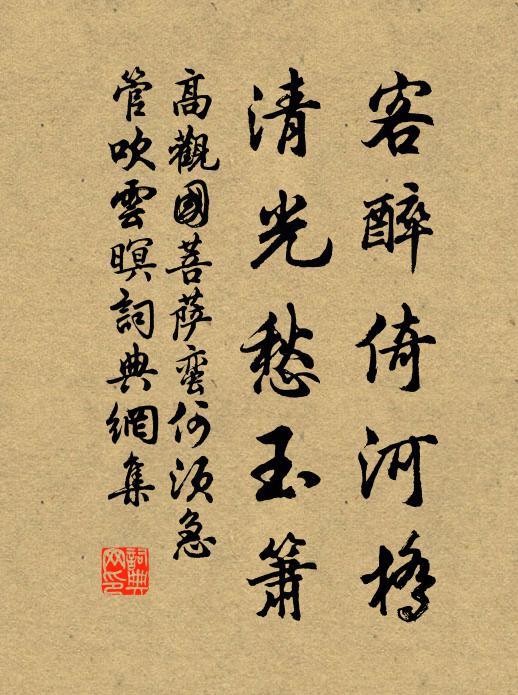 客醉倚河橋
清光愁玉簫
高觀國菩薩蠻何須急
管吹雲暝詞典網集
詞典網印